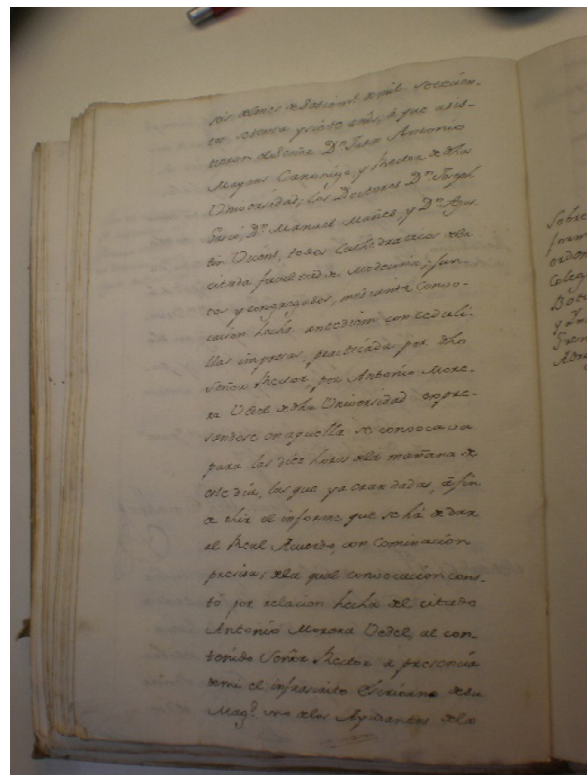 seis del mes de Deciembre de mil setecien-
tos setenta y siete años, à que asis-
tieron el Señor Dn. Juan Antonio
Mayans Canonigo, y Rector de dha
Universidad; los Doctores Dn. Joseph
Gascó, Dn. Manuel Mañes, y Dn. Agus
tin todos Cathedraticos de la
citada facultad de Medicina; jun-
tos y congregados, mediante Convo-
cacion hecha antediem con seduli-
llas impresas, practicada por dho
Señor Rector, por Antonio More-
ra Vedel de dha Universidad expre-
sandose en aquella se convocava
para las diez horas de la mañana de
este dia, las que ya eran dadas, à fin
de ohir el informe que se há de dar
al Real Acuerdo, con Cominación
precisa; de la qual convocación cons-
tó por relacion hecha del citado
Antonio Morera Vedel, al con-
tenido Señor Rector a presencia
de mi el infrascrito Escrivano de su
Magd. uno de los Ayudantes de la
Sobre
form
orden
Coleg
Botic
y de
Grem